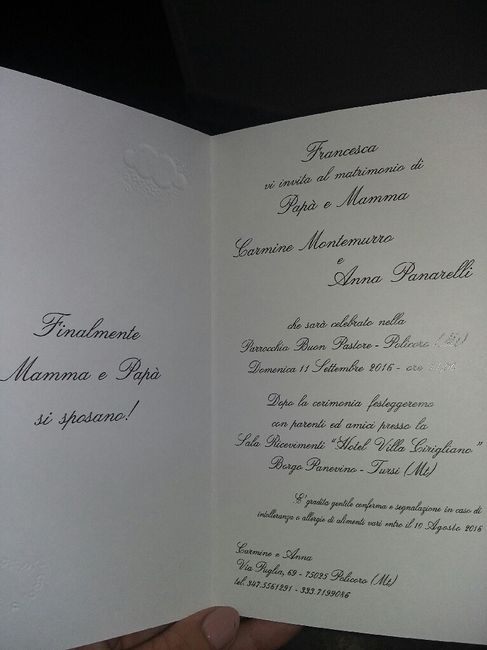 Finalmente
Mamma e Papà
si sposano!
Francesca
vi invita al matrimonio di
Papà e Mamma
Carmine Montemurro
e
Anna Panarelli
che sarà celebrato nella
Parrocchia Buon Pastore - Policoro (Mt)
Domenica 11 Settembre 2016 - ore
Dopo la cerimonia festeggeremo
con parenti ed amici presso la
Sala Ricevimenti "Hotel Villa Cirigliano"
Borgo Panevino - Tursi (Mt)
E' gradita gentile conferma e segnalazione in caso di
intolleranza o allergie di alimenti vari entro il 10 Agosto 2016
Carmine e Anna
Via Puglia, 69 - 75025 Policoro (Mt)
tel. 347.5561291 - 333.7199086